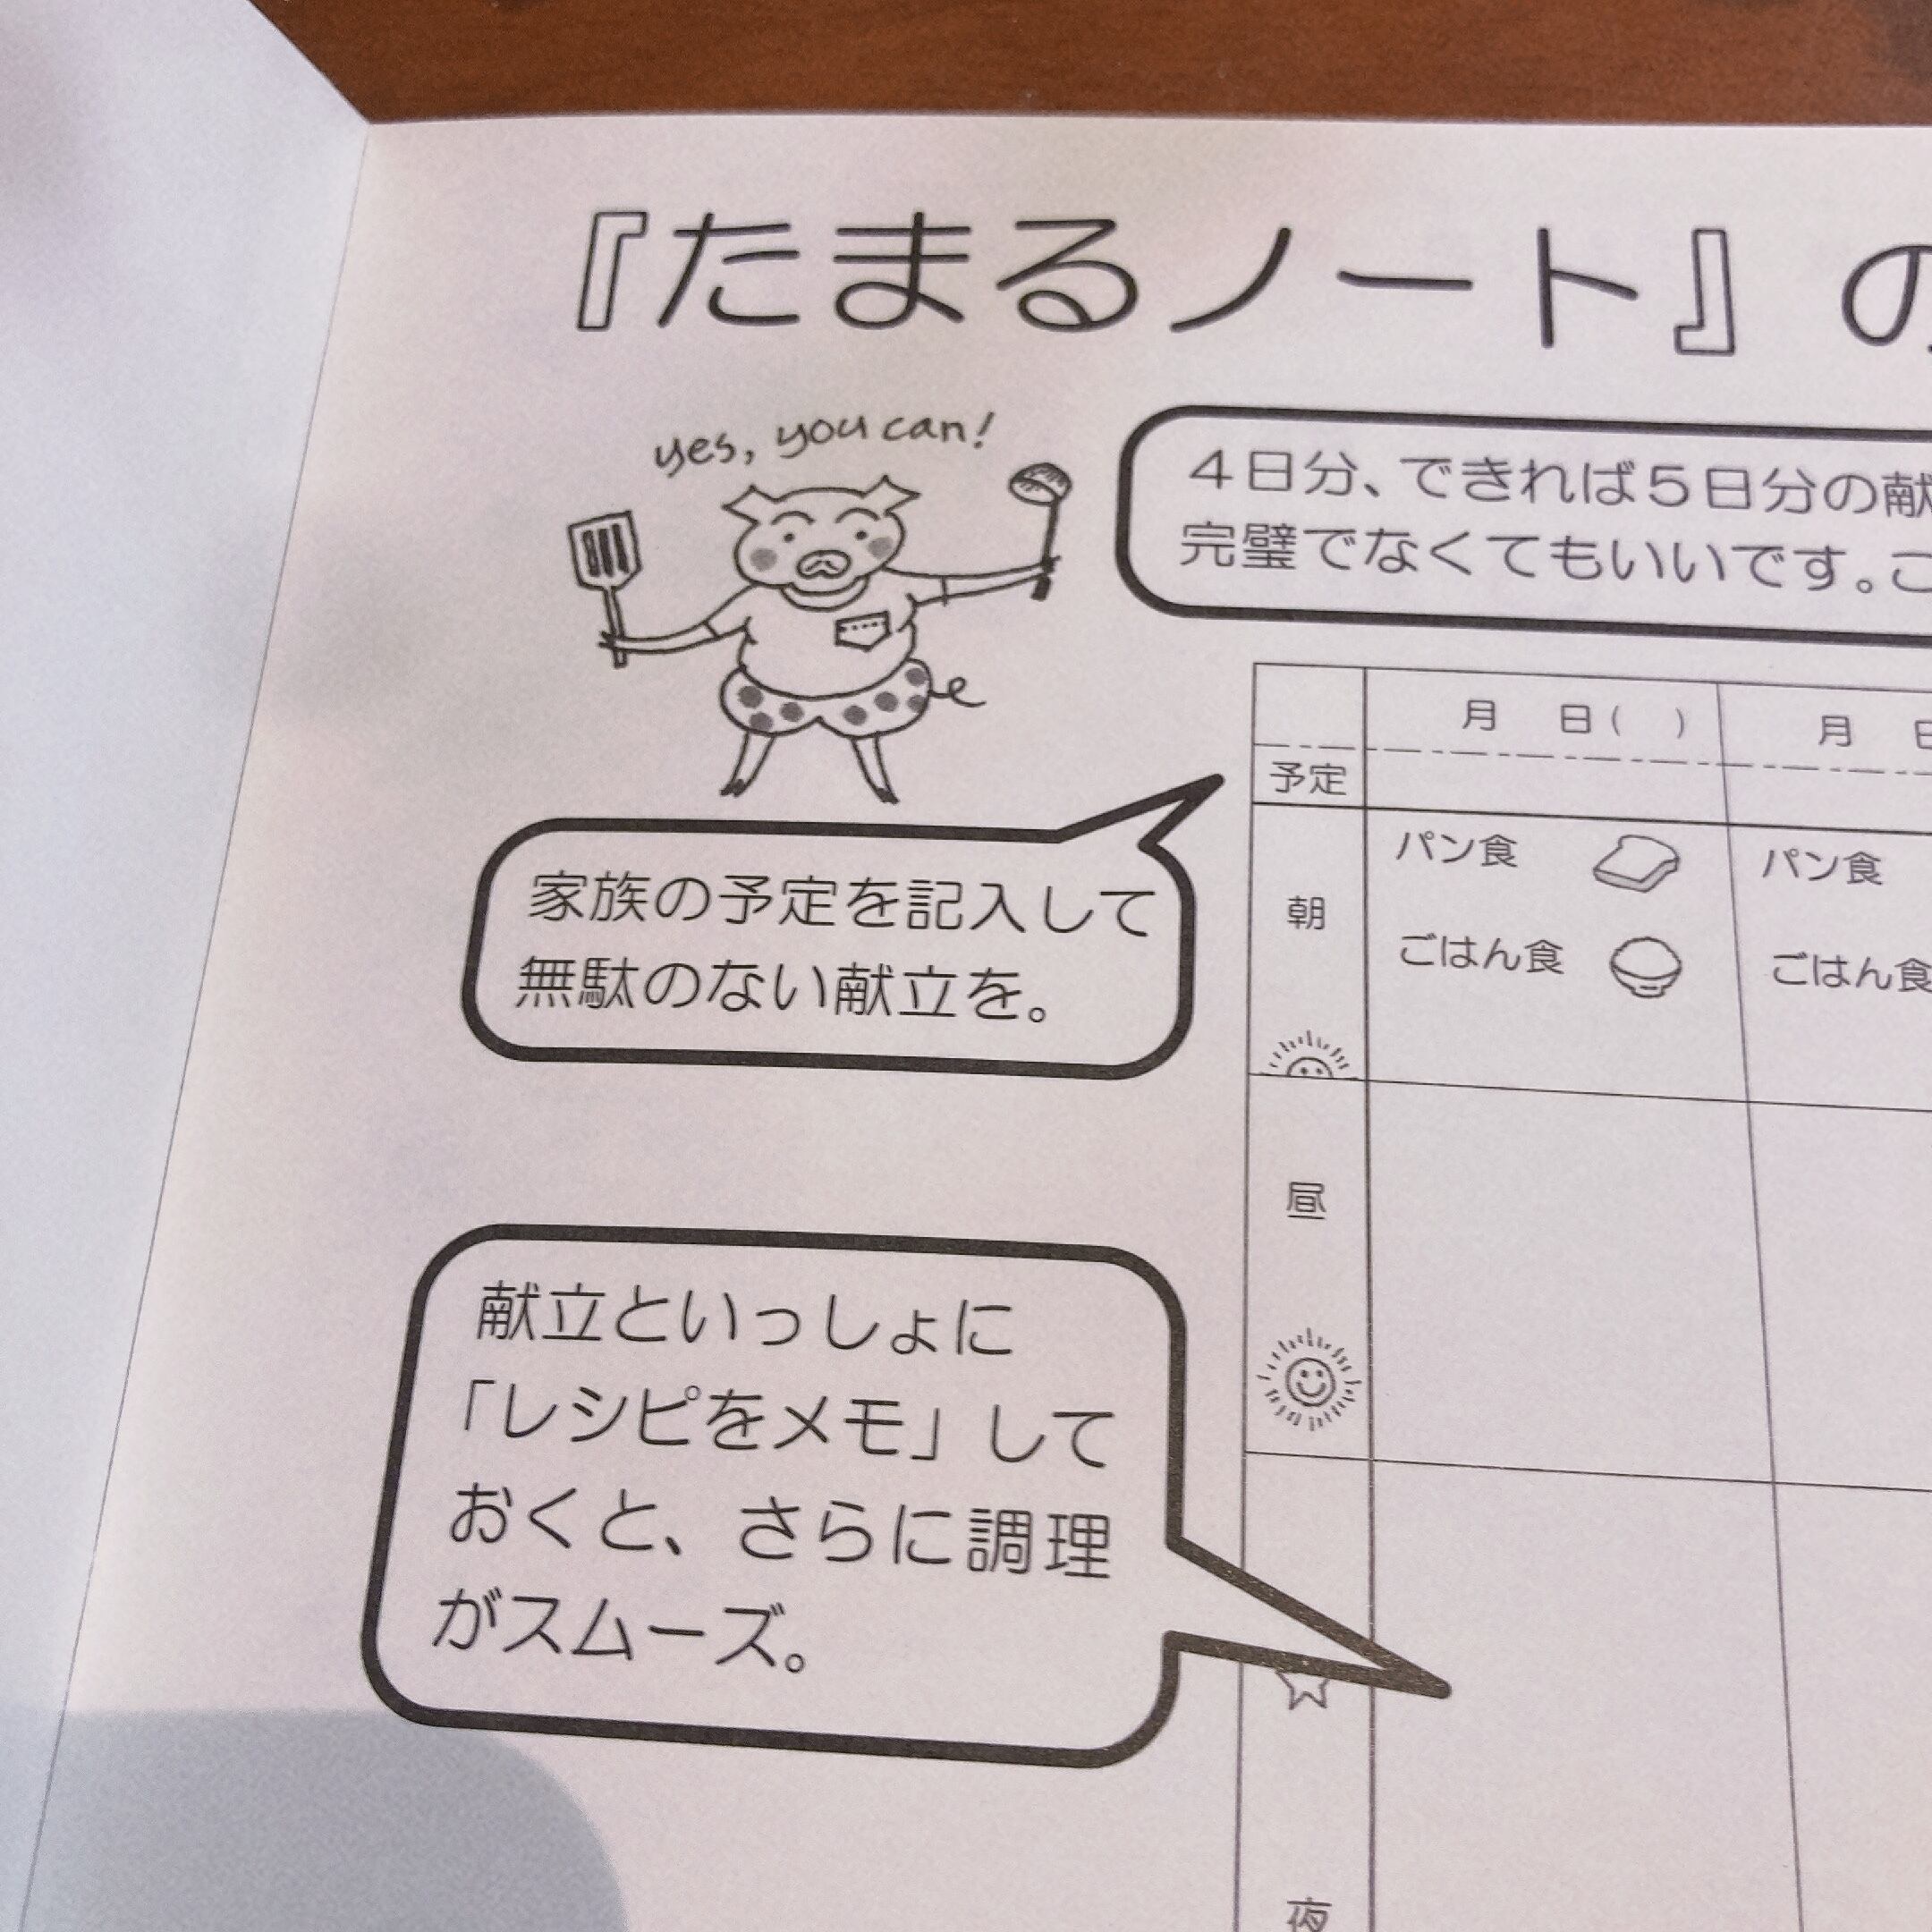 『たまるノート』の
yes, you can!
4日分、できれば5日分の献
完璧でなくてもいいです。こ
月 日( ) 月 日
予定
家族の予定を記入して
無駄のない献立を。
朝
パン食 パン食
ごはん食 ごはん食
昼
献立といっしょに
「レシピをメモ」して
おくと、さらに調理
がスムーズ。
夜